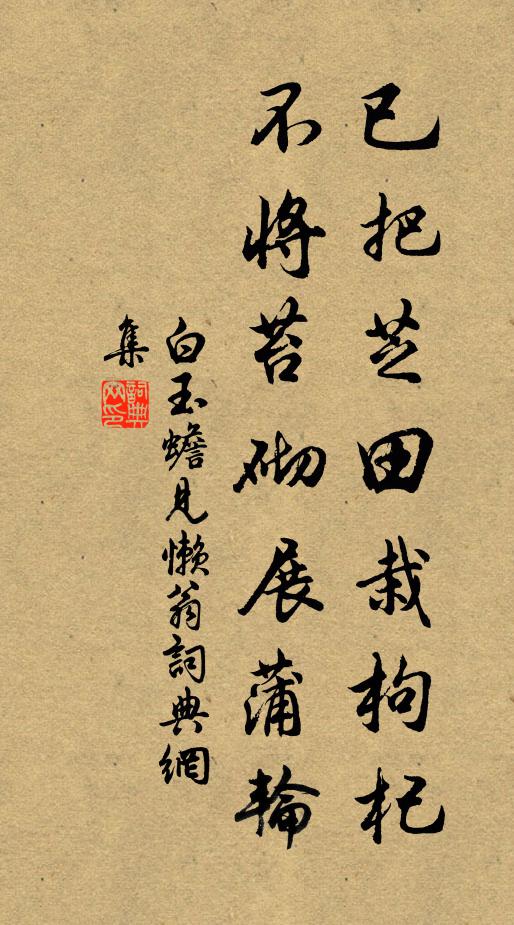 已把芝田栽枸杞
不將苔砌展蒲輪
白玉蟾見懶翁詞典網
集
詞典網印